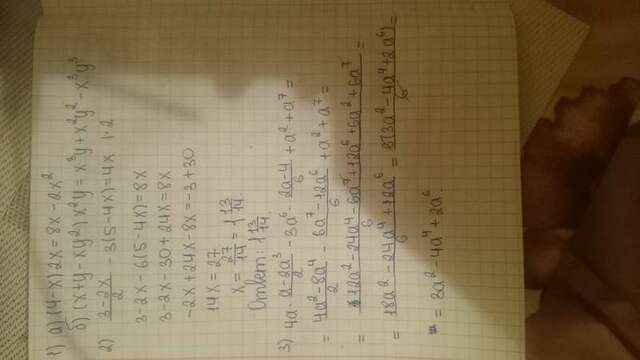 1) а) (4-x) 2x = 8x - 2x²
б) (x+y-xy²) x²y = x³y + x²y² - x³y³
2) (3-2x)/2 - 3(5-4x) = 4x | · 2
3-2x-6(5-4x)=8x
3-2x-30+24x=8x
-2x+24x-8x=-3+30
14x=27
x = 27/14 = 1 13/14.
Ответ: 1 13/14.
3) 4a · (a-2a³)/2 - 3a⁶ · (2a-4)/6 + a² + a⁷ =
= (4a²-8a⁴)/2 - (6a⁷-12a⁶)/6 + a² + a⁷ =
= (12a²-24a⁴-6a⁷+12a⁶+6a²+6a⁷)/6 =
= (18a²-24a⁴+12a⁶)/6 = (3a²-4a⁴+2a⁶)/6 =
= 3a²-4a⁴+2a⁶.